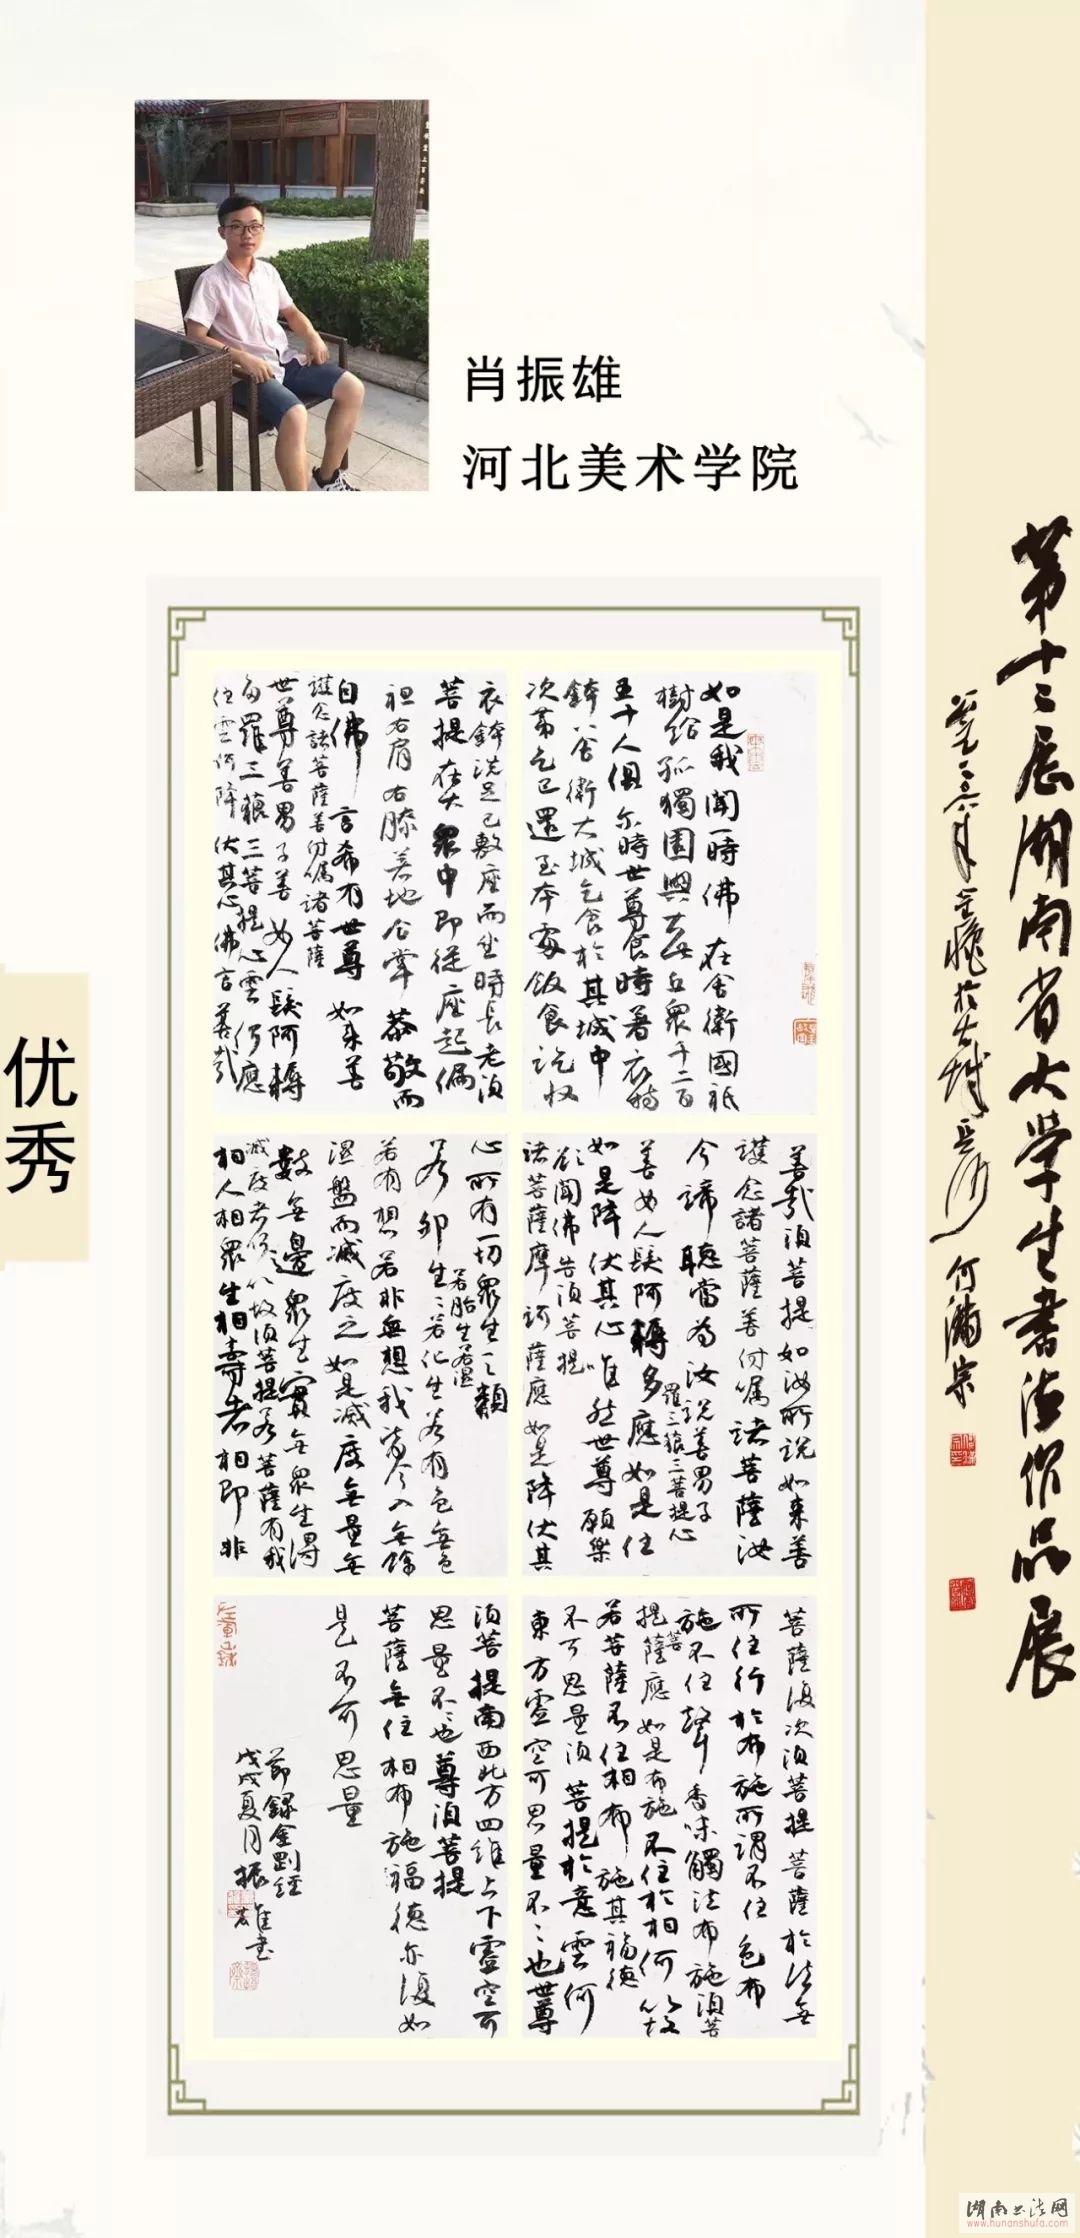 肖振雄
河北美术学院
优秀
第十二届湖南省大学生书法作品展
何满宗
如是我闻一時佛在舍衛國祇
樹給孤獨園與大比丘衆千二百
五十人俱尔時世尊食時著衣持
鉢入舍衛大城乞食於其城中
次第乞已還至本處飯食訖收
衣鉢洗足已敷座而坐時長老須
菩提在大衆中即從座起偏
袒右肩右膝著地合掌恭敬而
白佛言希有世尊如来善
護念諸菩薩善付嘱諸菩薩
世尊善男子善女人發阿耨
多羅三藐三菩提心雲何應
住雲何降伏其心佛言善哉
善哉須菩提如汝所説如来善
護念諸菩薩善付嘱諸菩薩汝
今諦聽當為汝説善男子
善女人發阿耨多羅三藐三菩提心應如是住
如是降伏其心唯然世尊願樂
欲聞佛告須菩提
諸菩薩摩訶薩應如是降伏其
心所有一切衆生之類
若卵生若胎生若濕生若化生若有色無色
若有想若非無想我皆令入無餘
涅盤而滅度之如是滅度無量無
數無邊衆生實無衆生得
滅度者何以故須菩提若菩薩有我
相人相衆生相壽者相即非
菩薩復次須菩提菩薩於法無
所住行於布施所謂不住色布
施不住聲香味觸法布施須菩
提菩薩應如是布施不住於相何以故
若菩薩不住相布施其福德
不可思量須菩提於意雲何
東方虚空可思量不不也世尊
須菩提南西北方四維上下虚空可
思量不不也尊須菩提
菩薩無住相布施福德亦復如
是不可思量
節録金剛經
戊戌夏月振雄書
湖南书法网
www.hunanshufa.com